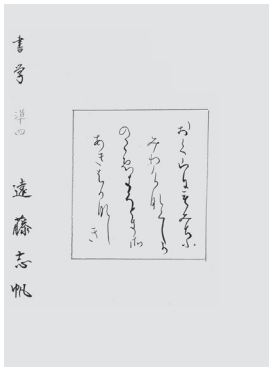 おく山にもみちふ
みわけなくしか
のこゑきくときそ
あきはかなし
き
書学 準四 遠藤志帆